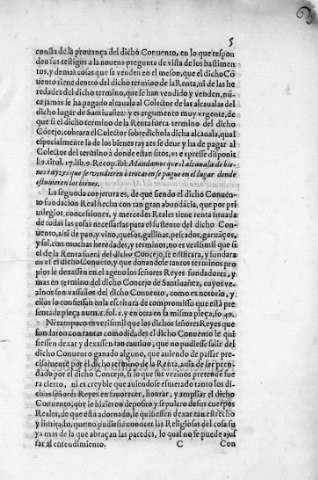 5
consta de la prouança del dicho Conuento, en lo que respon
den sus testigos a la nouena pregunta de vista de los bastimen-
tos, y demas cosas que se venden en el meson, que el dicho Cō
uento tiene dentro del dicho termino de la Renta, ni de las he
redades del dicho termino, que se han vendido y venden, nū-
ca jamas se ha pagado alcauala al Colector de las alcaualas del
dicho lugar de Santiuañez: y es argumento muy vrgente, de
que si el dicho termino de la Renta fuera termino del dicho
Cōcejo, cobrara el Colector sobredicho la dicha alcauala, qual
especialmente la de los bienes rayzes se deue y ha de pagar al
Colector del termino à donde estan sitos, vt expresse disponit
lex. tit. 17. lib. 9. Recop. ibi. Mandamos que el alcauala de bie-
nes rayzes que se vendieren ò trocaren se pague en el lugar donde
estuuieren los bienes.
La segunda conjetura es, de que siendo el dicho Conuen-
to fundacion Real hecha con tan gran abundācia, que por pri
uilegios, concessiones, y mercedes Reales tiene renta situada
de todas las cosas necessarias para el sustento del dicho Con
uento, assi de pan, y vino, queso, gallinas, pescados, garuāços,
y sal, con muchas heredades, y terminos, no es verisimil que si
el de la Renta fuera del dicho Concejo, se edificara, y fundara
en el el dicho Conuento, y que donandole tantos terminos pro
pios le dexassen en el ageno los señores Reyes fundadores, y
mas en termino del dicho Concejo de Santiuañez, cuyos ve-
zinos son vassallos del dicho Conuento, como es notorio, y
ellos lo confiessan en la escritura de compromisso que està pre
sentada pieça num. 1. fol. 1. y en otra en la misma pieça, fo. 40.
Ni tampoco es verisimil que los dichos señores Reyes que
fundaron con tantas comodidades el dicho Conuento le qui
siessen dexar y dexassen tan cautiuo, que no pudiesse salir del
dicho Conuento ganado alguno, que auiendo de passar pre-
cisamente por el dicho termino de la Renta, auia de ser pren-
dado por el dicho Concejo, si lo que sus vezinos pretende fue
ra cierto, ni es creyble que auiendose esmerado tanto los di-
chos señores Reyes en fauorecer, honrar, y ampliar el dicho
Conuento, que le hizieron deposito y sepulcro de sus cuerpos
Reales, de que està adornado, le quisiessen dexar tan estrecho
y limitado, que no pudiesse conocer las Religiosas del cosa su
ya mas de la que abraçan las paredes, lo qual no se puede aju
star al entendimiento. C Con